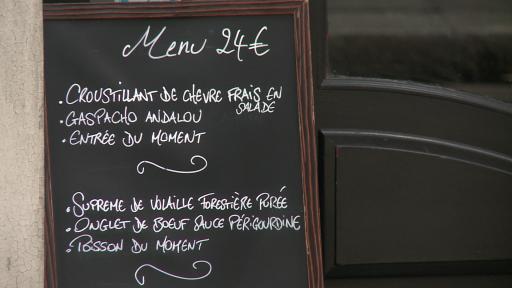 Menu 24€
. CROUSTILLANT DE CHEVRE FRAIS EN
SALADE
. GASPACHO ANDALOU
. ENTRÉE DU MOMENT
. SUPREME DE VOLAILLE FORESTIÈRE PURÉE
. ONGLET DE BOEUF SAUCE PÉRIGOURDINE
. POISSON DU MOMENT